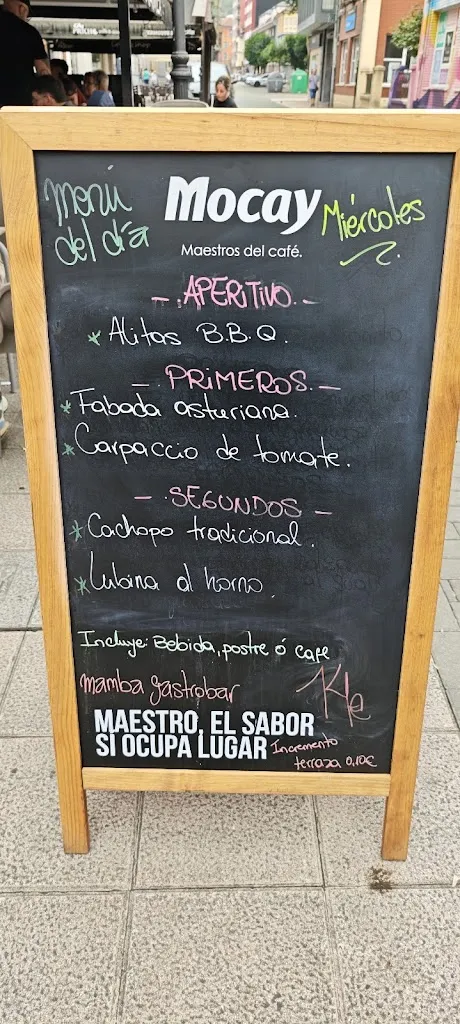 Menú
del día
Mocay
Maestros del café.
Miércoles
- APERITIVO. -
* Alitas B.B.Q.
- PRIMEROS. -
* Fabada asturiana.
* Carpaccio de tomate.
- SEGUNDOS -
* Cachopo tradicional.
* Lubina al horno.
Incluye: Bebida, postre ó café
mamba gastrobar
MAESTRO, EL SABOR
SI OCUPA LUGAR
Incremento
terraza 0,10€